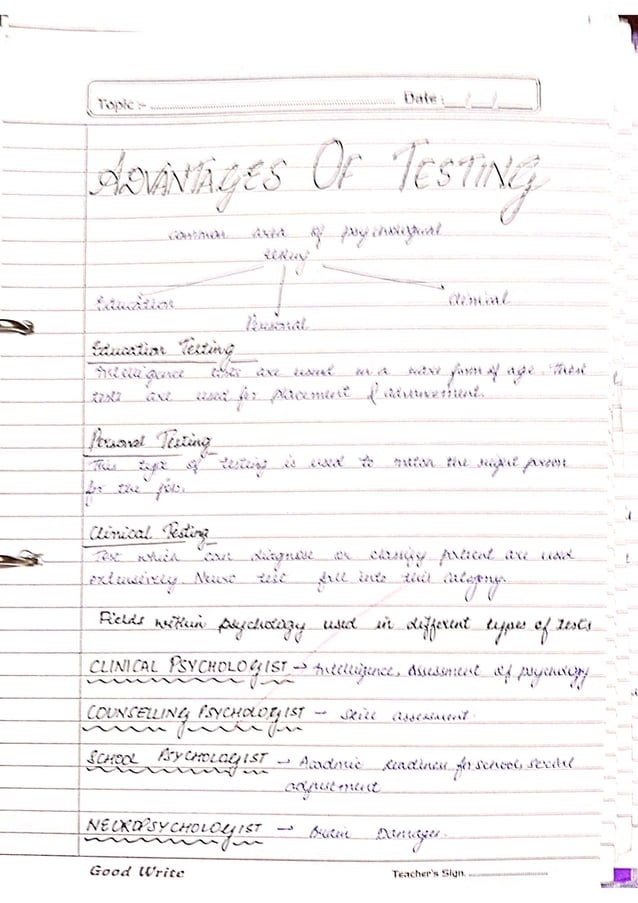 Topic :- Date :
ADVANTAGES OF TESTING
common area of psychological
testing
Education Clinical
Personal
Education Testing
Intelligence tests are used in a form of age. These
tests are used for placement & advancement.
Personal Testing
This type of testing is used to match the right person
for the job.
Clinical Testing
Test which can diagnose or classify patient are used
extensively. Neuro test fall into this category.
Fields within psychology used in different types of tests
CLINICAL PSYCHOLOGIST → Intelligence, Assessment of psychology
COUNSELLING PSYCHOLOGIST – skill assessment.
SCHOOL PSYCHOLOGIST → Acadmic readiness for school, social
adjustment
NEUROPSYCHOLOGIST → Brain Damages.
Good Write Teacher's Sign.